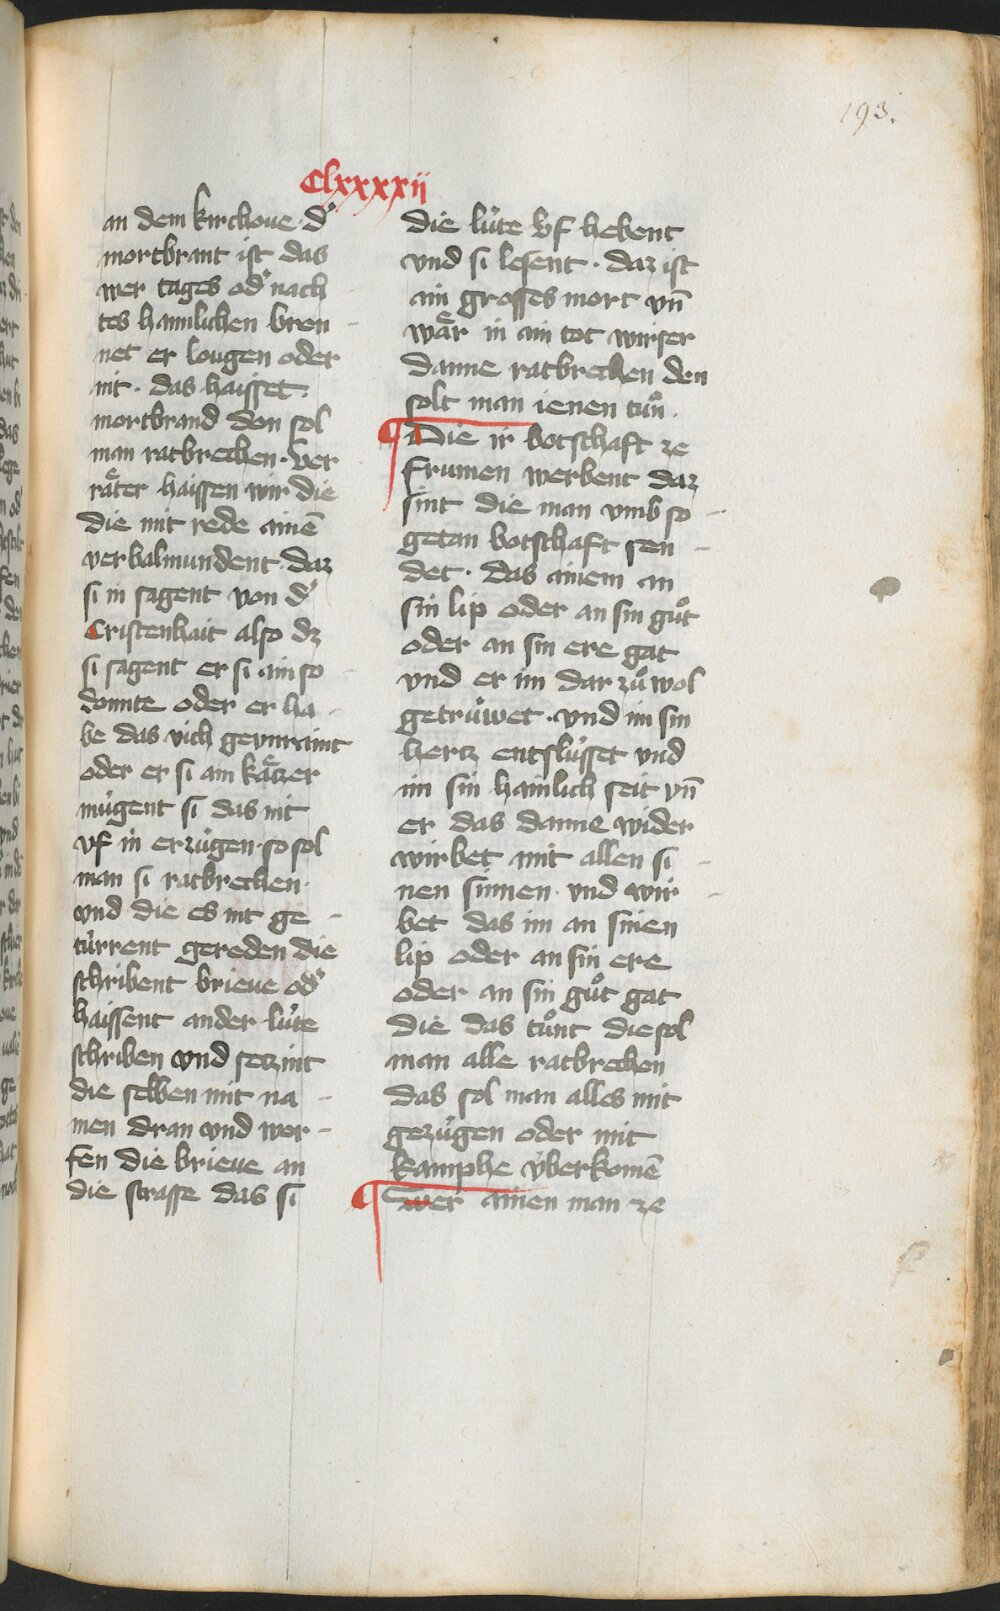 193.
Clxxxxii
an dem kirchoue · d᾽
mortbrant ist das
wer tages od᾽ nach
tes hainlichen bren
net er lougen oder
nit · das haisset ·
mortbrand don sol
man ratbrechen · ver
raͤter haissen wir die
die mit rede ainē
verbalmundent · daz
si in sagent von d᾽
Cristenhait also dz
si sagent er si ain so
domite oder er ha
be das vich geunraint
oder er si ain kaͤtzer
muͤgent si das nit
vf in erzuͤgen · so sol
man si ratbrechen ·
vnd die es nit ge
tuͤrrent gereden die
schribent brieue od᾽
haissent ander luͤte
schriben vnd setzint
die selben mit na
men dran vnd wer
fen die brieue an
die strasse das si
die luͤte vf hebent
vnd si lesent · daz ist
ain grosses mort vn̄
waͤr in ain tot wirser
danne ratbrechen den
solt man ienen tuͦn ·
¶ Die ir botschaft ze
frumen werbent daz
sint die man vmb so
getan botschaft sen
det · das ainem an
sin lip oder an sin guͦt
oder an sin ere gat
vnd er im dar zuͦ wol
getruͤwet · vnd im sin
hertz entsluͤsset vnd
im sin hainlich seit vn̄
er das danne wider
wirbet mit allen si
nen sinnen · vnd wir
bet das im an sinen
lip oder an sin ere
oder an sin guͦt gat
die das tuͦnt die sol
man alle ratbrechen
das sol man alles mit
gezuͤgen oder mit
kamphe vͤberkomē
¶ Swer ainen man ze